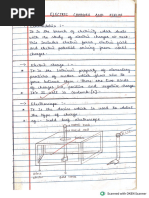 ELECTRIC CHARGES AND FIELD
Electrostatic :-
It is the branch of electricity which deals
with the study of electric charges at rest.
This includes electric force, electric field,
and electric potential among electric charges.
Electric charge :-
It is the intrinsic property of elementary
particles of matter which gives rise to
electric force between
Electroscope :-
It is the device which is used to detect
the type of charge.
eg :- Gold leaf electroscope
Scanned with OKEN Scanner